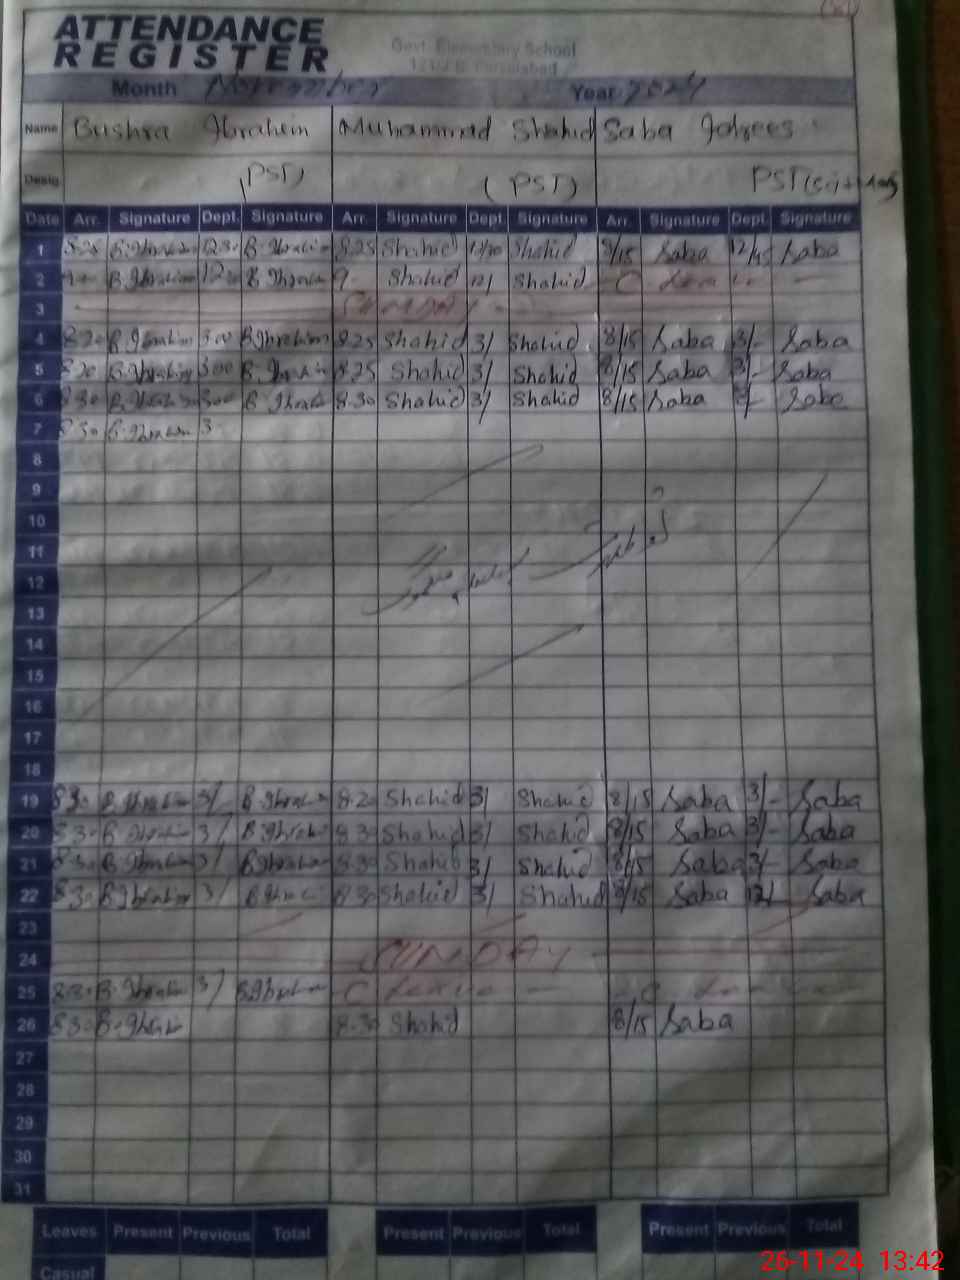 ATTENDANCE
REGISTER
Govt. Elementary School
Month November Year 2024
Name Bushra Ibrahim Muhammad Shahid Saba Idrees
Desig (PST) (PST) PST
Date Arr. Signature Dept. Signature Arr. Signature Dept. Signature Arr. Signature Dept. Signature
1 8.25 B.Ibrahim B.Ibrahim 8.25 Shahid Shahid 8/15 Saba 12/15 Saba
2 B.Ibrahim B.Ibrahim 9- Shahid 12/ Shahid - C Leave -
3 SUNDAY
4 8.20 B.Ibrahim 3.00 B.Ibrahim 8.25 Shahid 3/ Shahid 8/15 Saba 3/- Saba
5 8.20 B.Ibrahim 3.00 B.Ibrahim 8.25 Shahid 3/ Shahid 8/15 Saba 3/- Saba
6 8.30 B.Ibrahim 3.00 B.Ibrahim 8.30 Shahid 3/ Shahid 8/15 Saba 3/- Saba
7 8.30 B.Ibrahim 3
8
9
10
11
12
13
14
15
16
17
18
19 8.30 B.Ibrahim 3/ B.Ibrahim 8.20 Shahid 3/ Shahid 8/15 Saba 3/- Saba
20 8.30 B.Ibrahim 3/ B.Ibrahim 8.30 Shahid 3/ Shahid 8/15 Saba 3/- Saba
21 8.30 B.Ibrahim 3/ B.Ibrahim 8.30 Shahid 3/ Shahid 8/15 Saba 3/- Saba
22 8.30 B.Ibrahim 3/ B.Ibrahim 8.30 Shahid 3/ Shahid 8/15 Saba 12/ Saba
23
24 SUNDAY
25 8.30 B.Ibrahim 3/ B.Ibrahim - C Leave - - C Leave
26 8.30 B.Ibrahim 8.30 Shahid 8/15 Saba
27
28
29
30
31
Leaves Present Previous Total Present Previous Total Present Previous Total
Casual
26-11-24 13:42